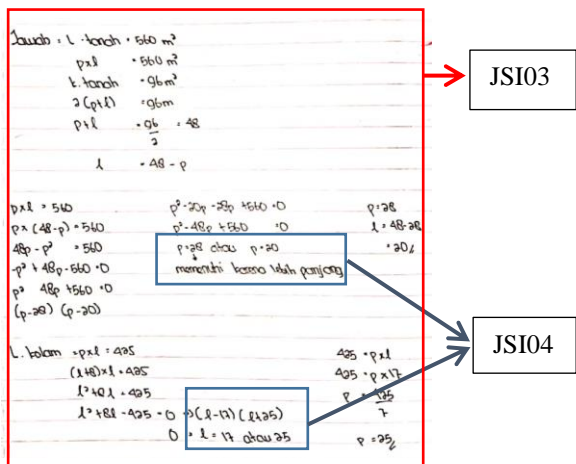 Jawab = L. tanah = 560 m²
p x l = 560 m²
k. tanah = 96m²
2(p+l) = 96m
p+l = 96/2 = 48
l = 48 - p
p x l = 560
p x (48-p) = 560
48p - p² = 560
-p² + 48p - 560 = 0
p² 48p + 560 = 0
(p-28) (p-20)
p² - 20p - 28p + 560 = 0
p² - 48p + 560 = 0
p = 28 atau p = 20
memenuhi karena lebih panjang
p = 28
l = 48-28
= 20
L. kolam = p x l = 425
(l+8) x l = 425
l² + 8l = 425
l² + 8l - 425 = 0 → (l-17) (l+25)
0 = l = 17 atau 25
425 = p x l
425 = p x 17
p = 425/7
p = 25
JSI03
JSI04